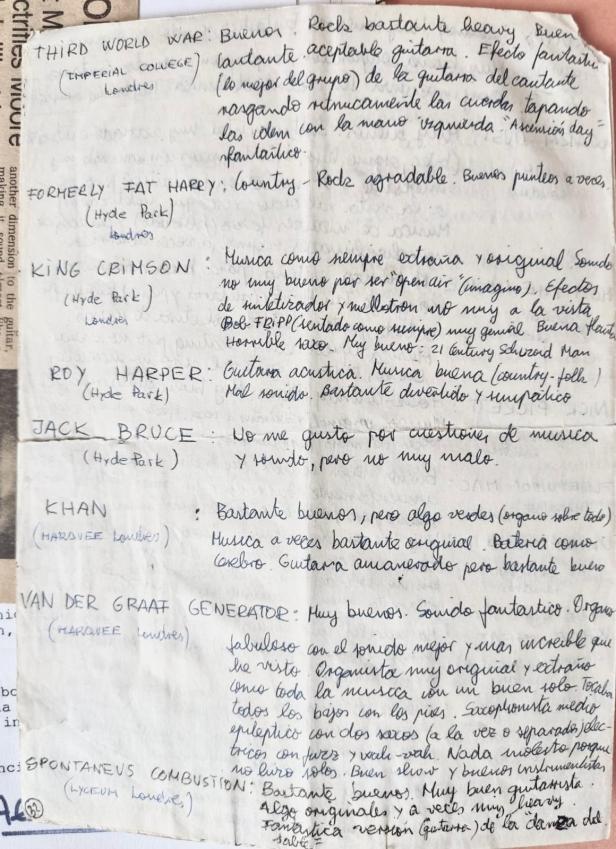 THIRD WORLD WAR: Buenos. Rock bastante heavy. Buen
(IMPERIAL COLLEGE) cantante aceptable guitarra. Efecto fantastico
Londres (lo mejor del grupo) de la guitarra del cantante
rasgando ritmicamente las cuerdas tapando
las idem con la mano izquierda. "Ascension day" =
fantastico.
FORMERLY FAT HARRY: Country - Rock agradable. Buenos punteos a veces.
(Hyde Park)
Londres
KING CRIMSON : Musica como siempre extraña y original. Sonido
(Hyde Park) no muy bueno por ser "open air" (imagino). Efectos
Londres de sintetizador y mellotron no muy a la vista
Bob FRIPP (sentado como siempre) muy genial. Buena flauta
Horrible saxo. Muy bueno: 21 Century Schizoid Man
ROY HARPER: Guitarra acustica. Musica buena (country-folk)
(Hyde Park) Mal sonido. Bastante divertido y simpatico
JACK BRUCE : No me gusto por cuestiones de musica
(Hyde Park) y sonido, pero no muy malo.
KHAN : Bastante buenos, pero algo verdes (organo sobre todo)
(MARQUEE Londres) Musica a veces bastante original. Bateria como
cerebro. Guitarra amanerado pero bastante bueno
VAN DER GRAAF GENERATOR: Muy buenos. Sonido fantastico. Organo
(MARQUEE Londres) fabuloso con el sonido mejor y mas increible que
he visto. Organista muy original y extraño
como toda la musica con un buen solo. Tocaba
todos los bajos con los pies. Saxophonista medio
epileptico con dos saxos (a la vez o separados) elec-
tricos con fuzz y wah-wah. Nada molesto porque
no hizo solos. Buen show y buenos instrumentistas
SPONTANEUS COMBUSTION: Bastante buenos. Muy buen guitarrista.
(LYCEUM Londres) Algo originales y a veces muy heavy.
Fantastica version (guitarra) de la "danza del
sable"=
another dimension to the guitar,